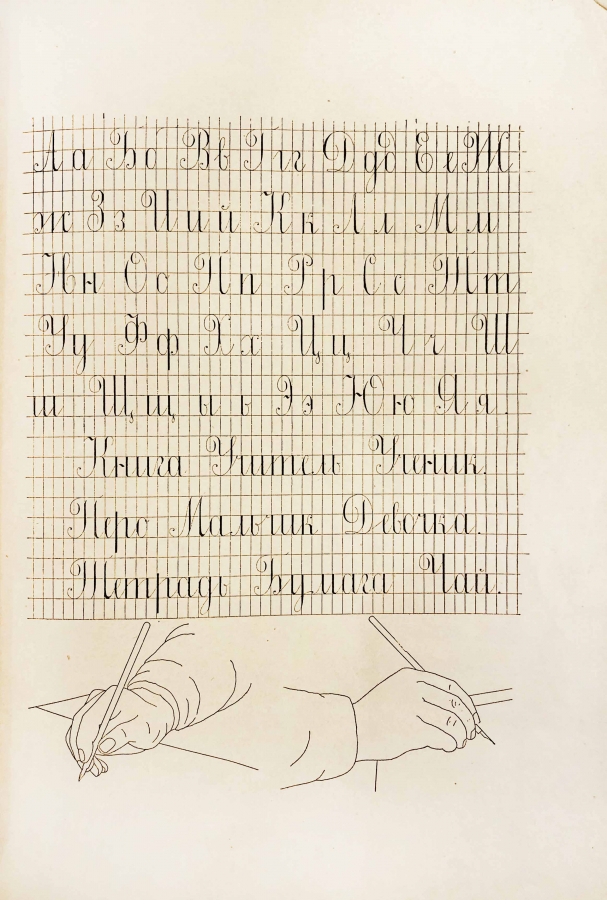 Аа Бб Вв Ггг Ддд Ее Ж
ж Зз Ии й Кк Лл Мм
Нн Оо Пп Рр Сс Тт
Уу Фф Хх Цц Чч Ш
ш Щщ ы ь Ээ Юю Яя.
Книга Учитель Ученик.
Перо Мальчик Девочка.
Тетрадь Бумага Чай.